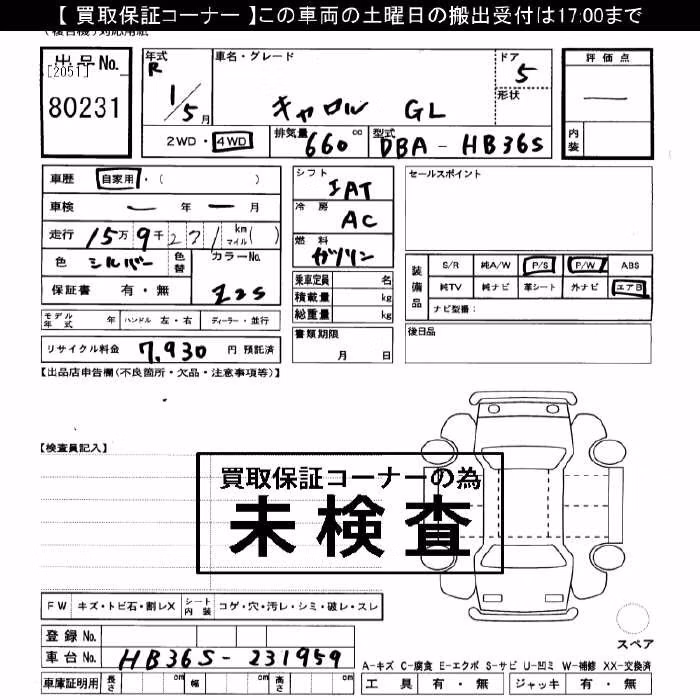 【 買取保証コーナー 】この車両の土曜日の搬出受付は17:00まで
出品No.
[2051]
80231
年式
R
1/5月
車名・グレード
キャロル GL
ドア
5
形状
評価点
—
内装
2WD・4WD
排気量
660cc
型式
DBA-HB36S
車歴 自家用・( )
車検 — 年 — 月
走行 15万9千271 km マイル( )
色 シルバー 色替 カラーNo.
Z2S
保証書 有・無
モデル年式 年 ハンドル 左・右 ディーラー・並行
リサイクル料金 7,930 円 預託済
シフト
IAT
冷房
AC
燃料
ガソリン
乗車定員 名
積載量 kg
総重量 kg
書類期限
月 日
セールスポイント
装備品
S/R 純A/W P/S P/W ABS
純TV 純ナビ 革シート 外ナビ エアB
ナビ型番:
後日品
【出品店申告欄(不良箇所・欠品・注意事項等)】
【検査員記入】
買取保証コーナーの為
未検査
FW キズ・トビ石・割レX シート内装 コゲ・穴・汚レ・シミ・破レ・スレ
登録No.
車台No. HB36S-231959
車庫証明用 長さ cm 幅 cm 高さ cm
スペア
A-キズ C-腐食 E-エクボ S-サビ U-凹ミ W-補修 XX-交換済
工具 有・無 ジャッキ 有・無